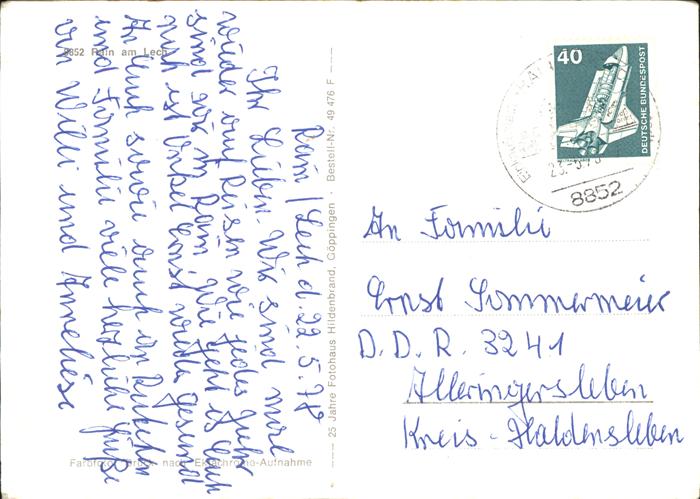 8852 Rain am Lech
Rain / Lech d. 22.5.78
Ihr Lieben. Wir sind mal
wieder auf Reisen wie jedes Jahr
sind wir in Rain. Wie geht es Euch
ist Onkel Ernst wieder gesund
An Euch sowie auch an
und Familie viele herzliche Grüße
von Willi und Anneliese
Farbfoto: nach Ektachrome-Aufnahme
25 Jahre Fotohaus Hildenbrand, Göppingen · Bestell-Nr. 49 476 F
40
DEUTSCHE BUNDESPOST
8852
An Familie
Ernst Sommermeier
D.D.R. 3241
Alleringersleben
Kreis-Haldensleben